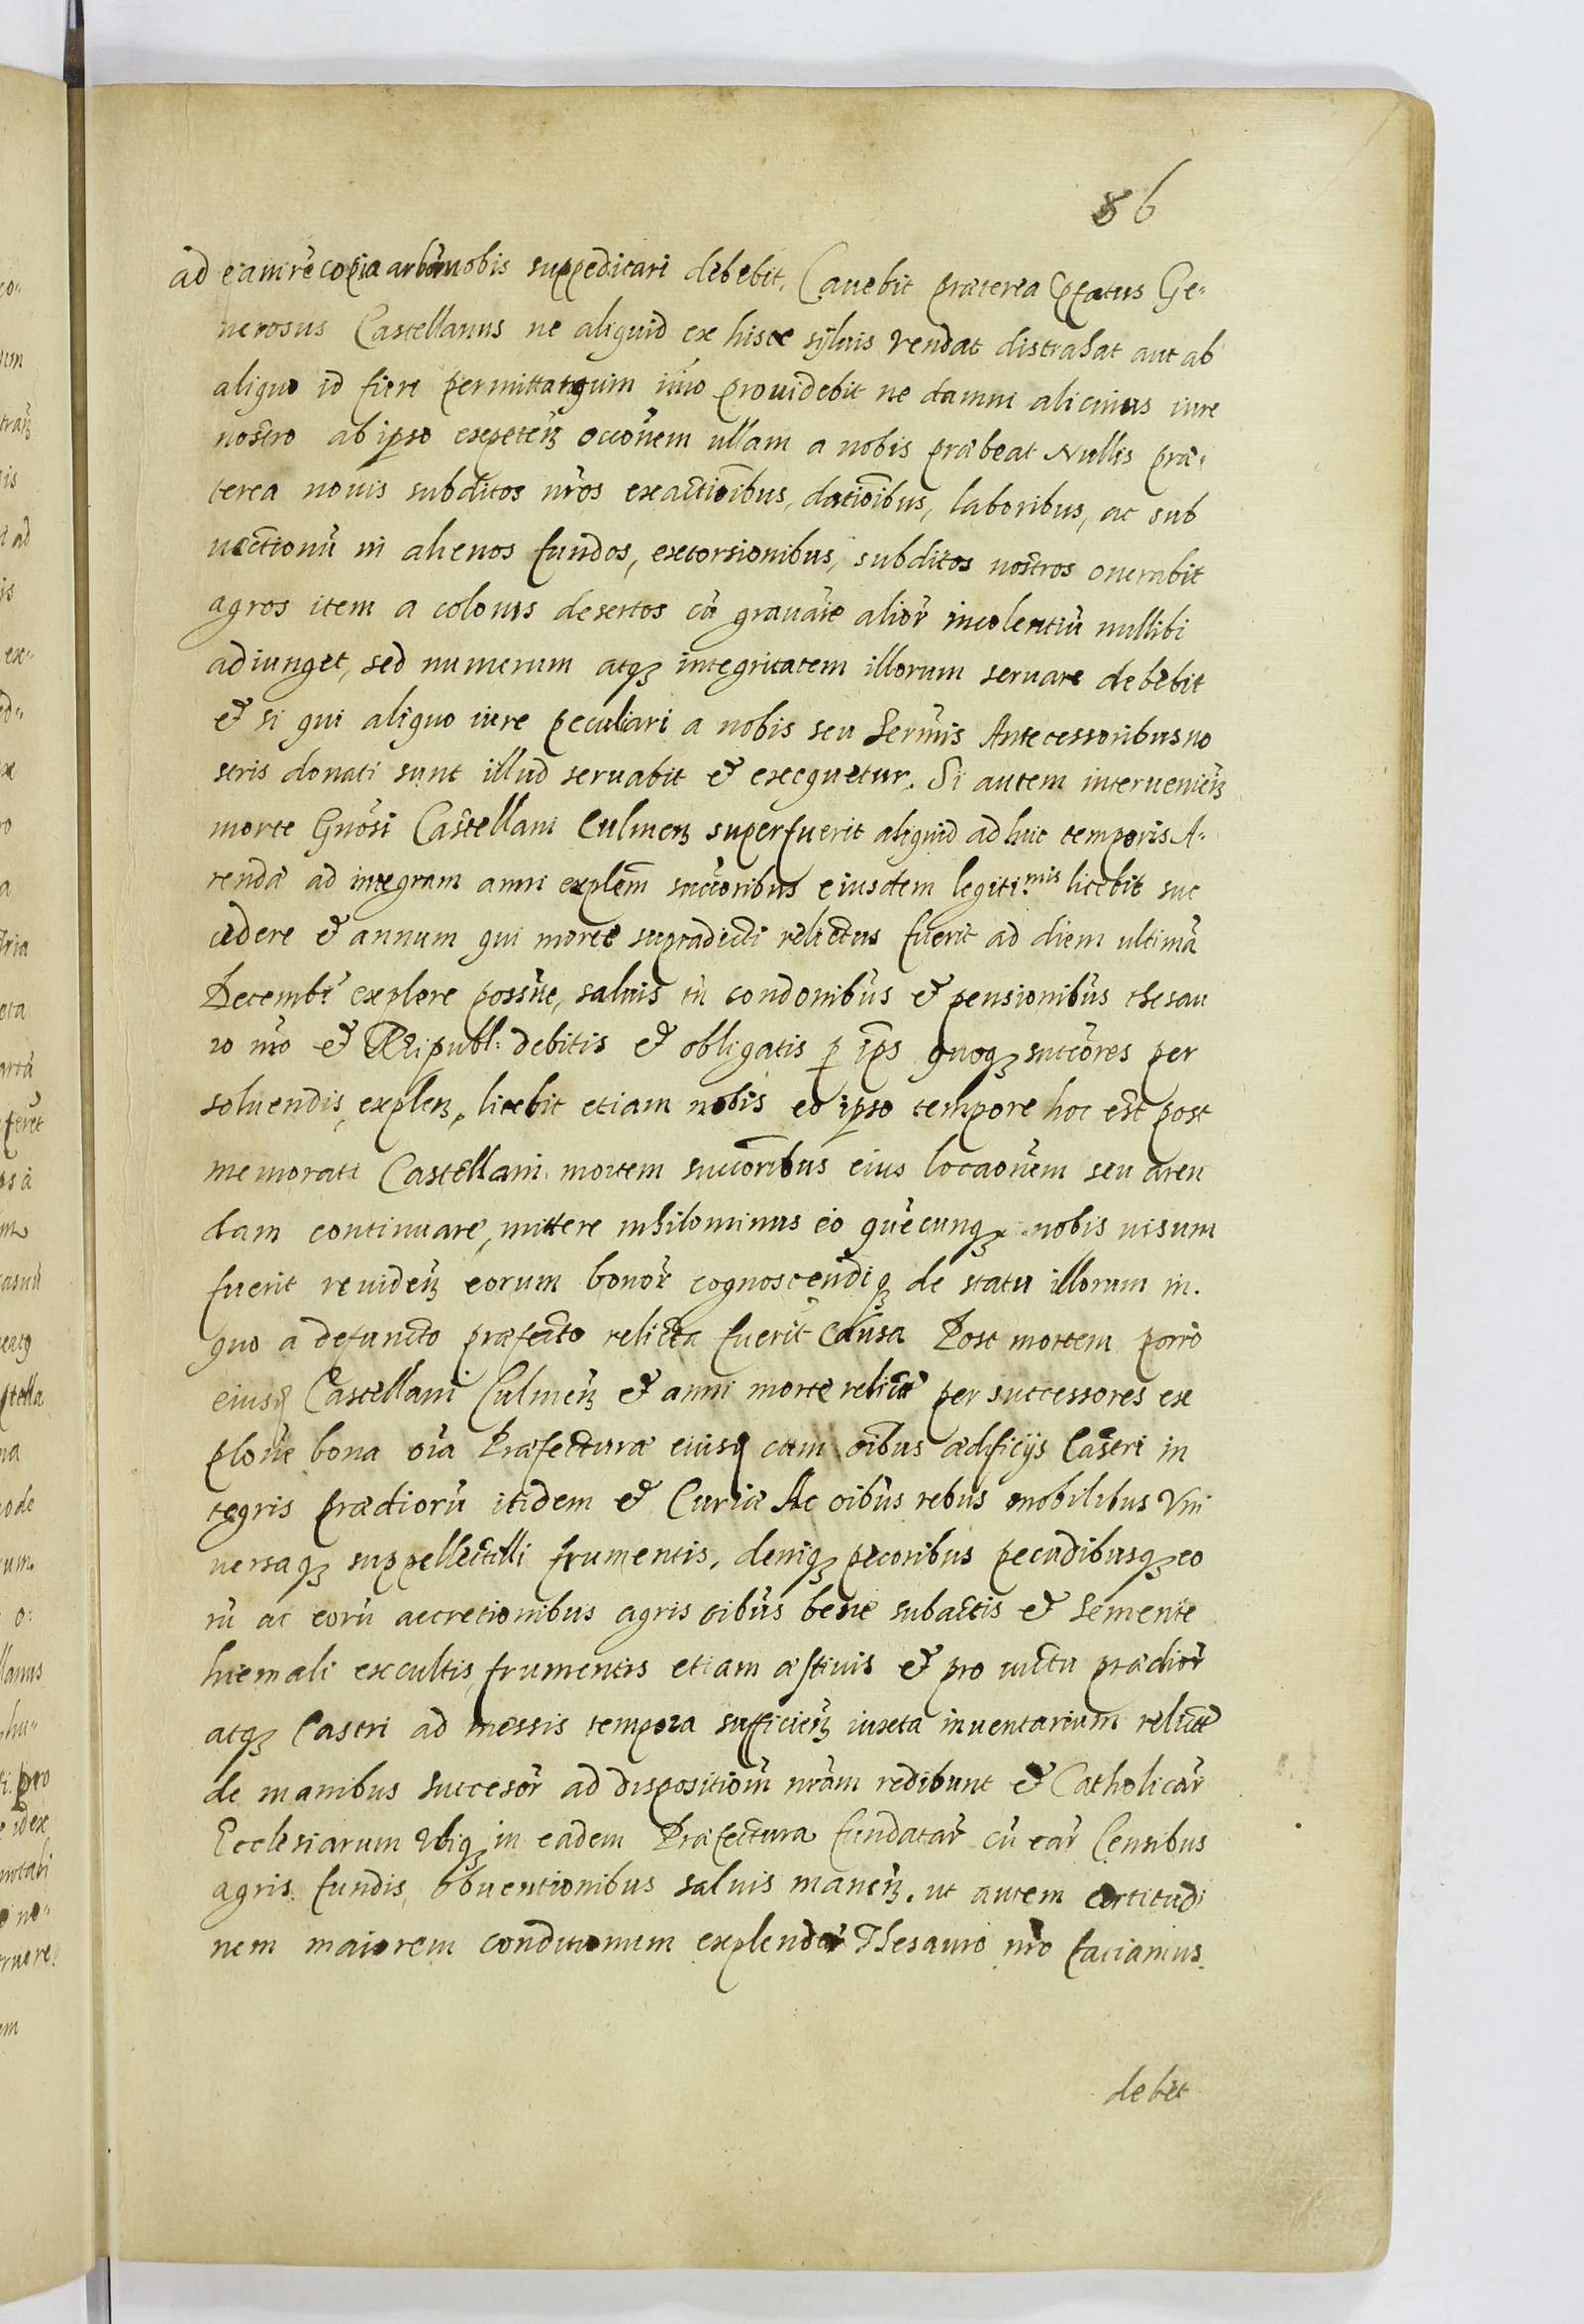 86
ad eam rē copia arborū nobis suppeditari debebit, Cavebit præterea Pfatus Ge-
nerosus Castellanus ne aliquid ex hisce sylvis vendat distrahat aut ab
aliquo id fieri permittat quin imo providebit ne damni alicuius iure
nostro ab ipso expeten̄ occōnem ullam a nobis præbeat Nullis præ-
terea novis subditos nr̄os exactiōibus, datiōibus, laboribus, ac sub
vectionū in alienos fundos, extorsionibus, subditos nostros onerabit
agros item a colonis desertos cū gravāie alior̄ incolentiū nullibi
adiunget, sed numerum atqꝫ integritatem illorum servare debebit
et si qui aliquo iure peculiari a nobis seu Serm̄is Antecessoribus no
stris donati sunt illud servabit et exequetur. Si autem intervenien̄
morte Gnōsi Castellani Culmen̄ superfuerit aliquid adhuc temporis A-
rendæ ad integram anni explem̄ succōribus eiusdem legitimis licebit suc
cedere et annum qui morte supradicti relictus fuerit ad diem ultimā
Decembr̄ explere possūt, salvis tn̄ condōnibus et pensionibus thesau
ro nr̄o et Reipubl: debitis et obligatis ꝑ ip̄s quoqꝫ succōres per
solvendis, explen̄, licebit etiam nobis eo ipso tempore hoc est post
memorati Castellani mortem succōribus eius locaōnem seu aren
dam continuare, mittere nihilominus eo quēcunqꝫ nobis visum
fuerit reviden̄ eorum bonor̄ cognoscendiqꝫ de statu illorum in
quo a defuncto præfecto relicta fuerit causa Post mortem porro
eiusđ Castellani Culmen̄ et anni morte relicti per successores ex
plōne bona oīa Præfecturæ eiusđ cum oībus ædificijs Castri in
tegris Prædiorū itidem et Curiæ Ac oībus rebus mobilibus Vni
versaqꝫ suppellectili frumentis, deniqꝫ pecoribus pecudibusqꝫ eo
rū ac eorū accretionibus agris oībus bene subactis et Semente
hiemali excultis, frumentis etiam æstivis et pro victu prædior̄
atqꝫ Castri ad messis tempora sufficien̄ iuxta inventarium relict
de manibus Succesor̄ ad dispositiōm nr̄am redibunt et Catholicar̄
Ecclesiarum Vbiqꝫ in eadem Præfectura fundatar̄ cū ear̄ Censibus
agris fundis obventionibus salvis manen̄. ut autem certitudi
nem maiorem conditionum explendar̄ Thesauro nr̄o faciamus
debet